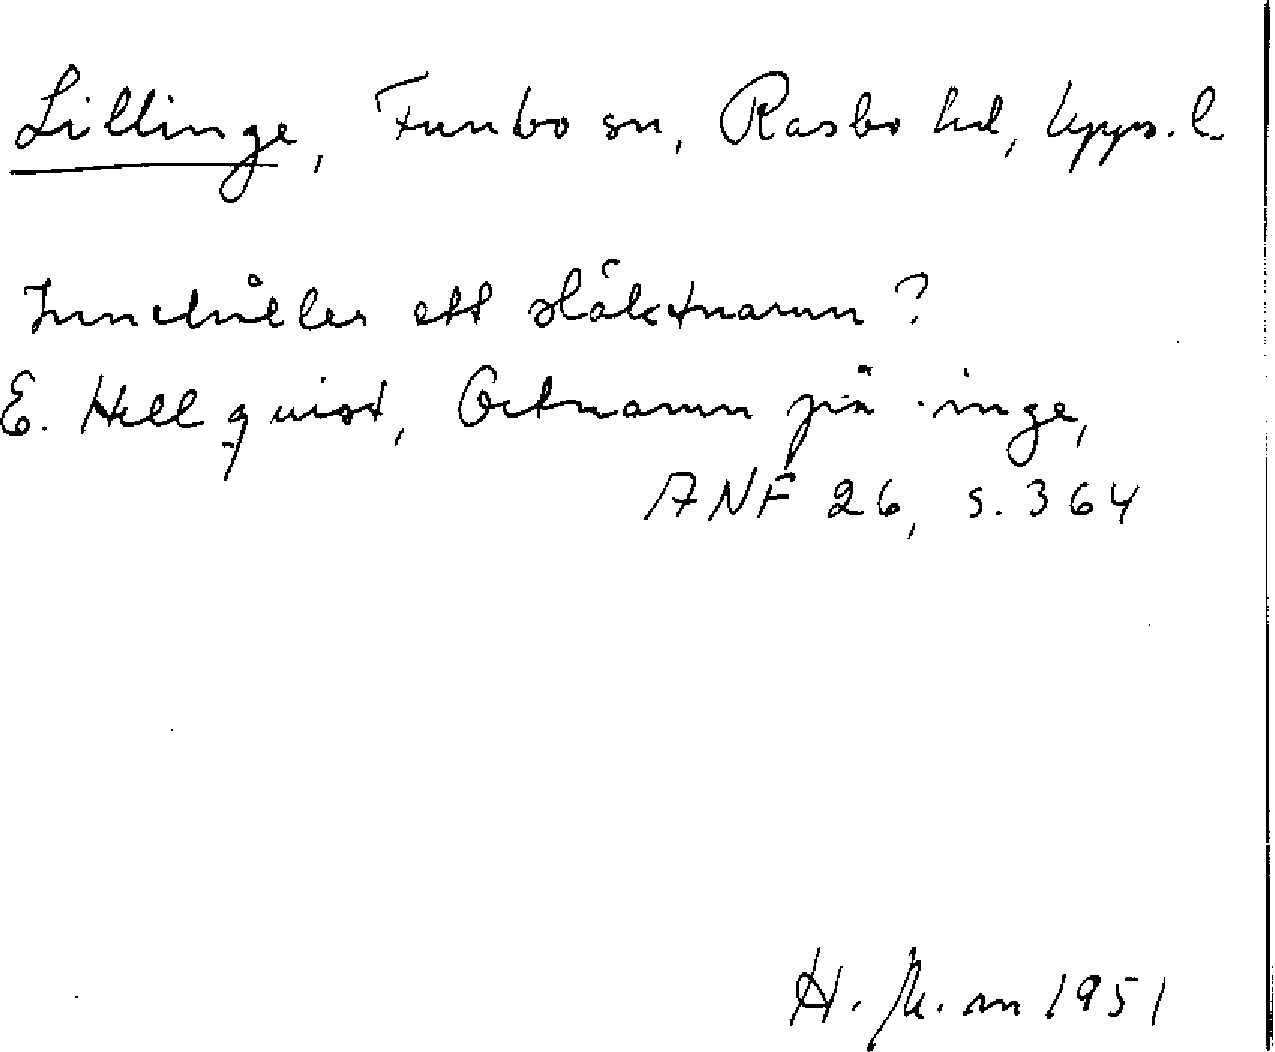 Lillinge, Funbo sn, Rasbo hd, Upps. l.
Innehåller ett släktnamn?
E. Hellquist, Ortnamn på -inge,
ANF 26, s. 364
H. 1951